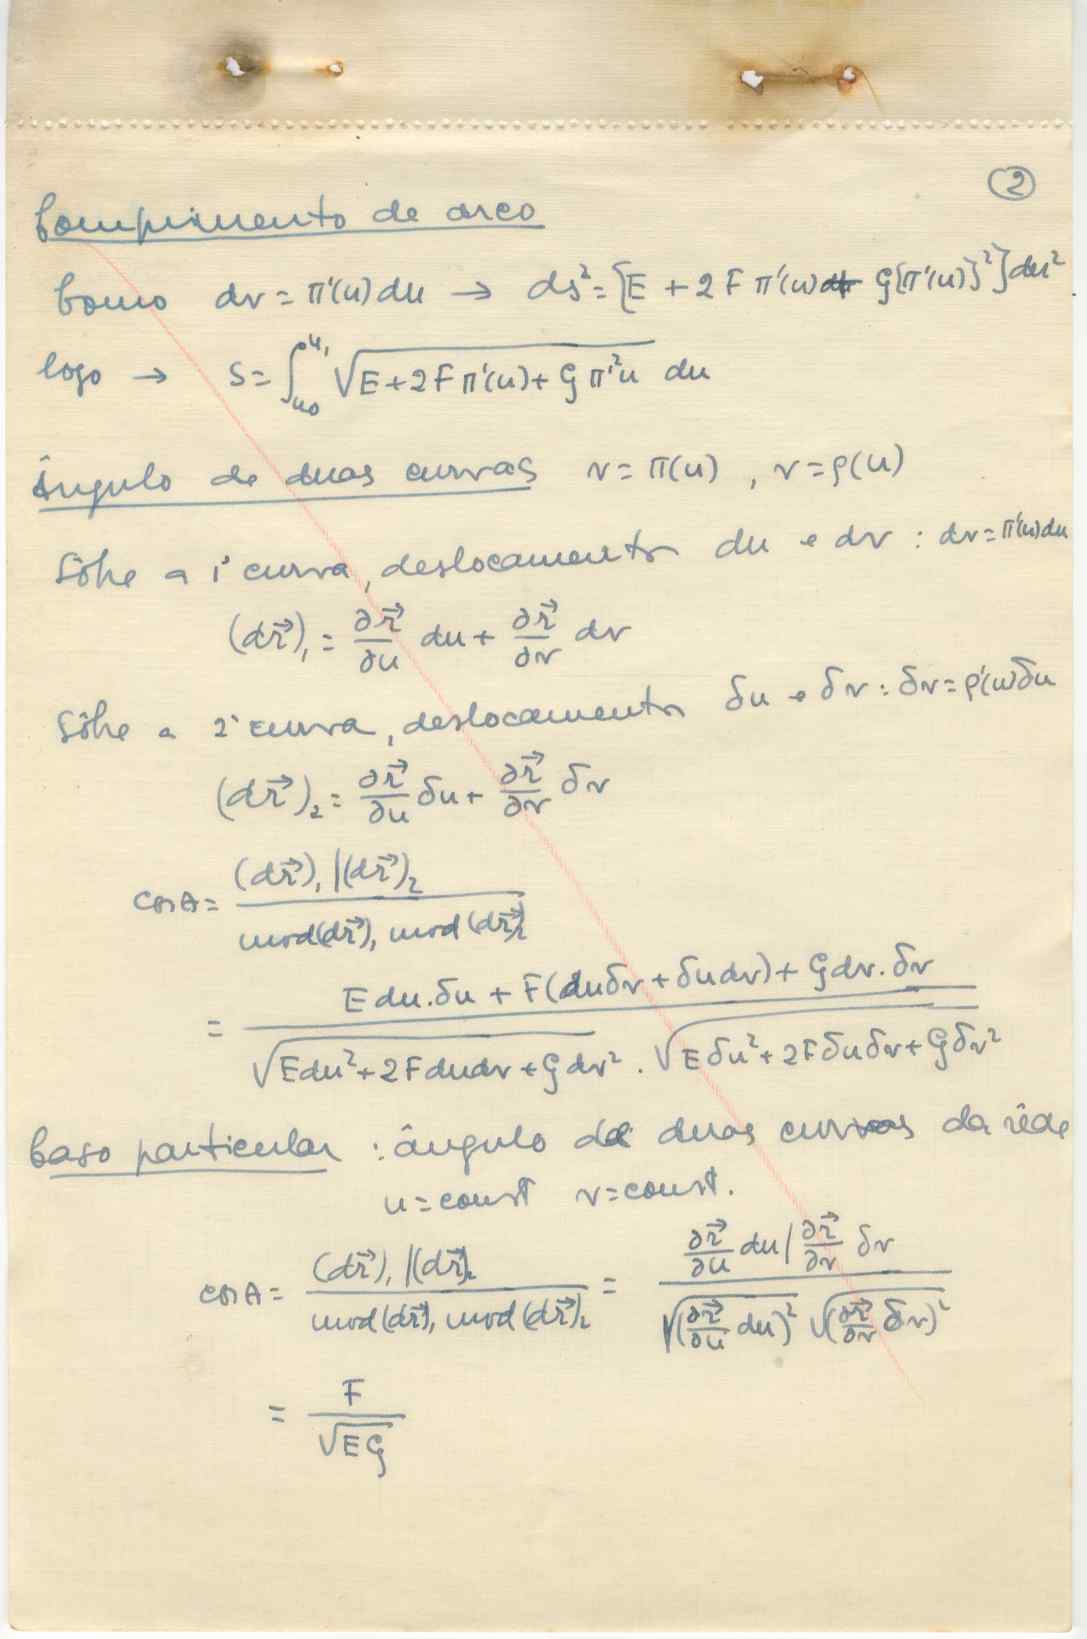 ②
Comprimento de arco
Como dv = π'(u) du → ds² = [E + 2 F π'(u) + G{π'(u)}²] du²
logo → S = ∫_{u₀}^{u₁} √(E + 2 F π'(u) + G π'²u) du
Ângulo de duas curvas v = π(u) , v = ρ(u)
Sôbre a 1ª curva, deslocamento du e dv : dv = π'(u) du
(dr⃗)₁ = ∂r⃗/∂u du + ∂r⃗/∂v dv
Sôbre a 2ª curva, deslocamento δu e δv : δv = ρ'(u) δu
(dr⃗)₂ = ∂r⃗/∂u δu + ∂r⃗/∂v δv
cos A = (dr⃗)₁ | (dr⃗)₂ / mod (dr⃗)₁ mod (dr⃗)₂
= E du . δu + F (du δv + δu dv) + G dv . δv / √(E du² + 2 F du dv + G dv²) . √(E δu² + 2 F δu δv + G δv²)
Caso particular : ângulo de duas curvas da rêde
u = const v = const.
cos A = (dr⃗)₁ | (dr⃗)₂ / mod (dr⃗)₁ mod (dr⃗)₂ = ∂r⃗/∂u du | ∂r⃗/∂v δv / √(∂r⃗/∂u du)² √(∂r⃗/∂v δv)²
= F / √(E G)